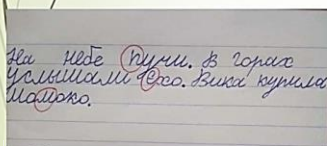 На небе пучи. В горах
услышали Эхо. Вика купила
мамоко.